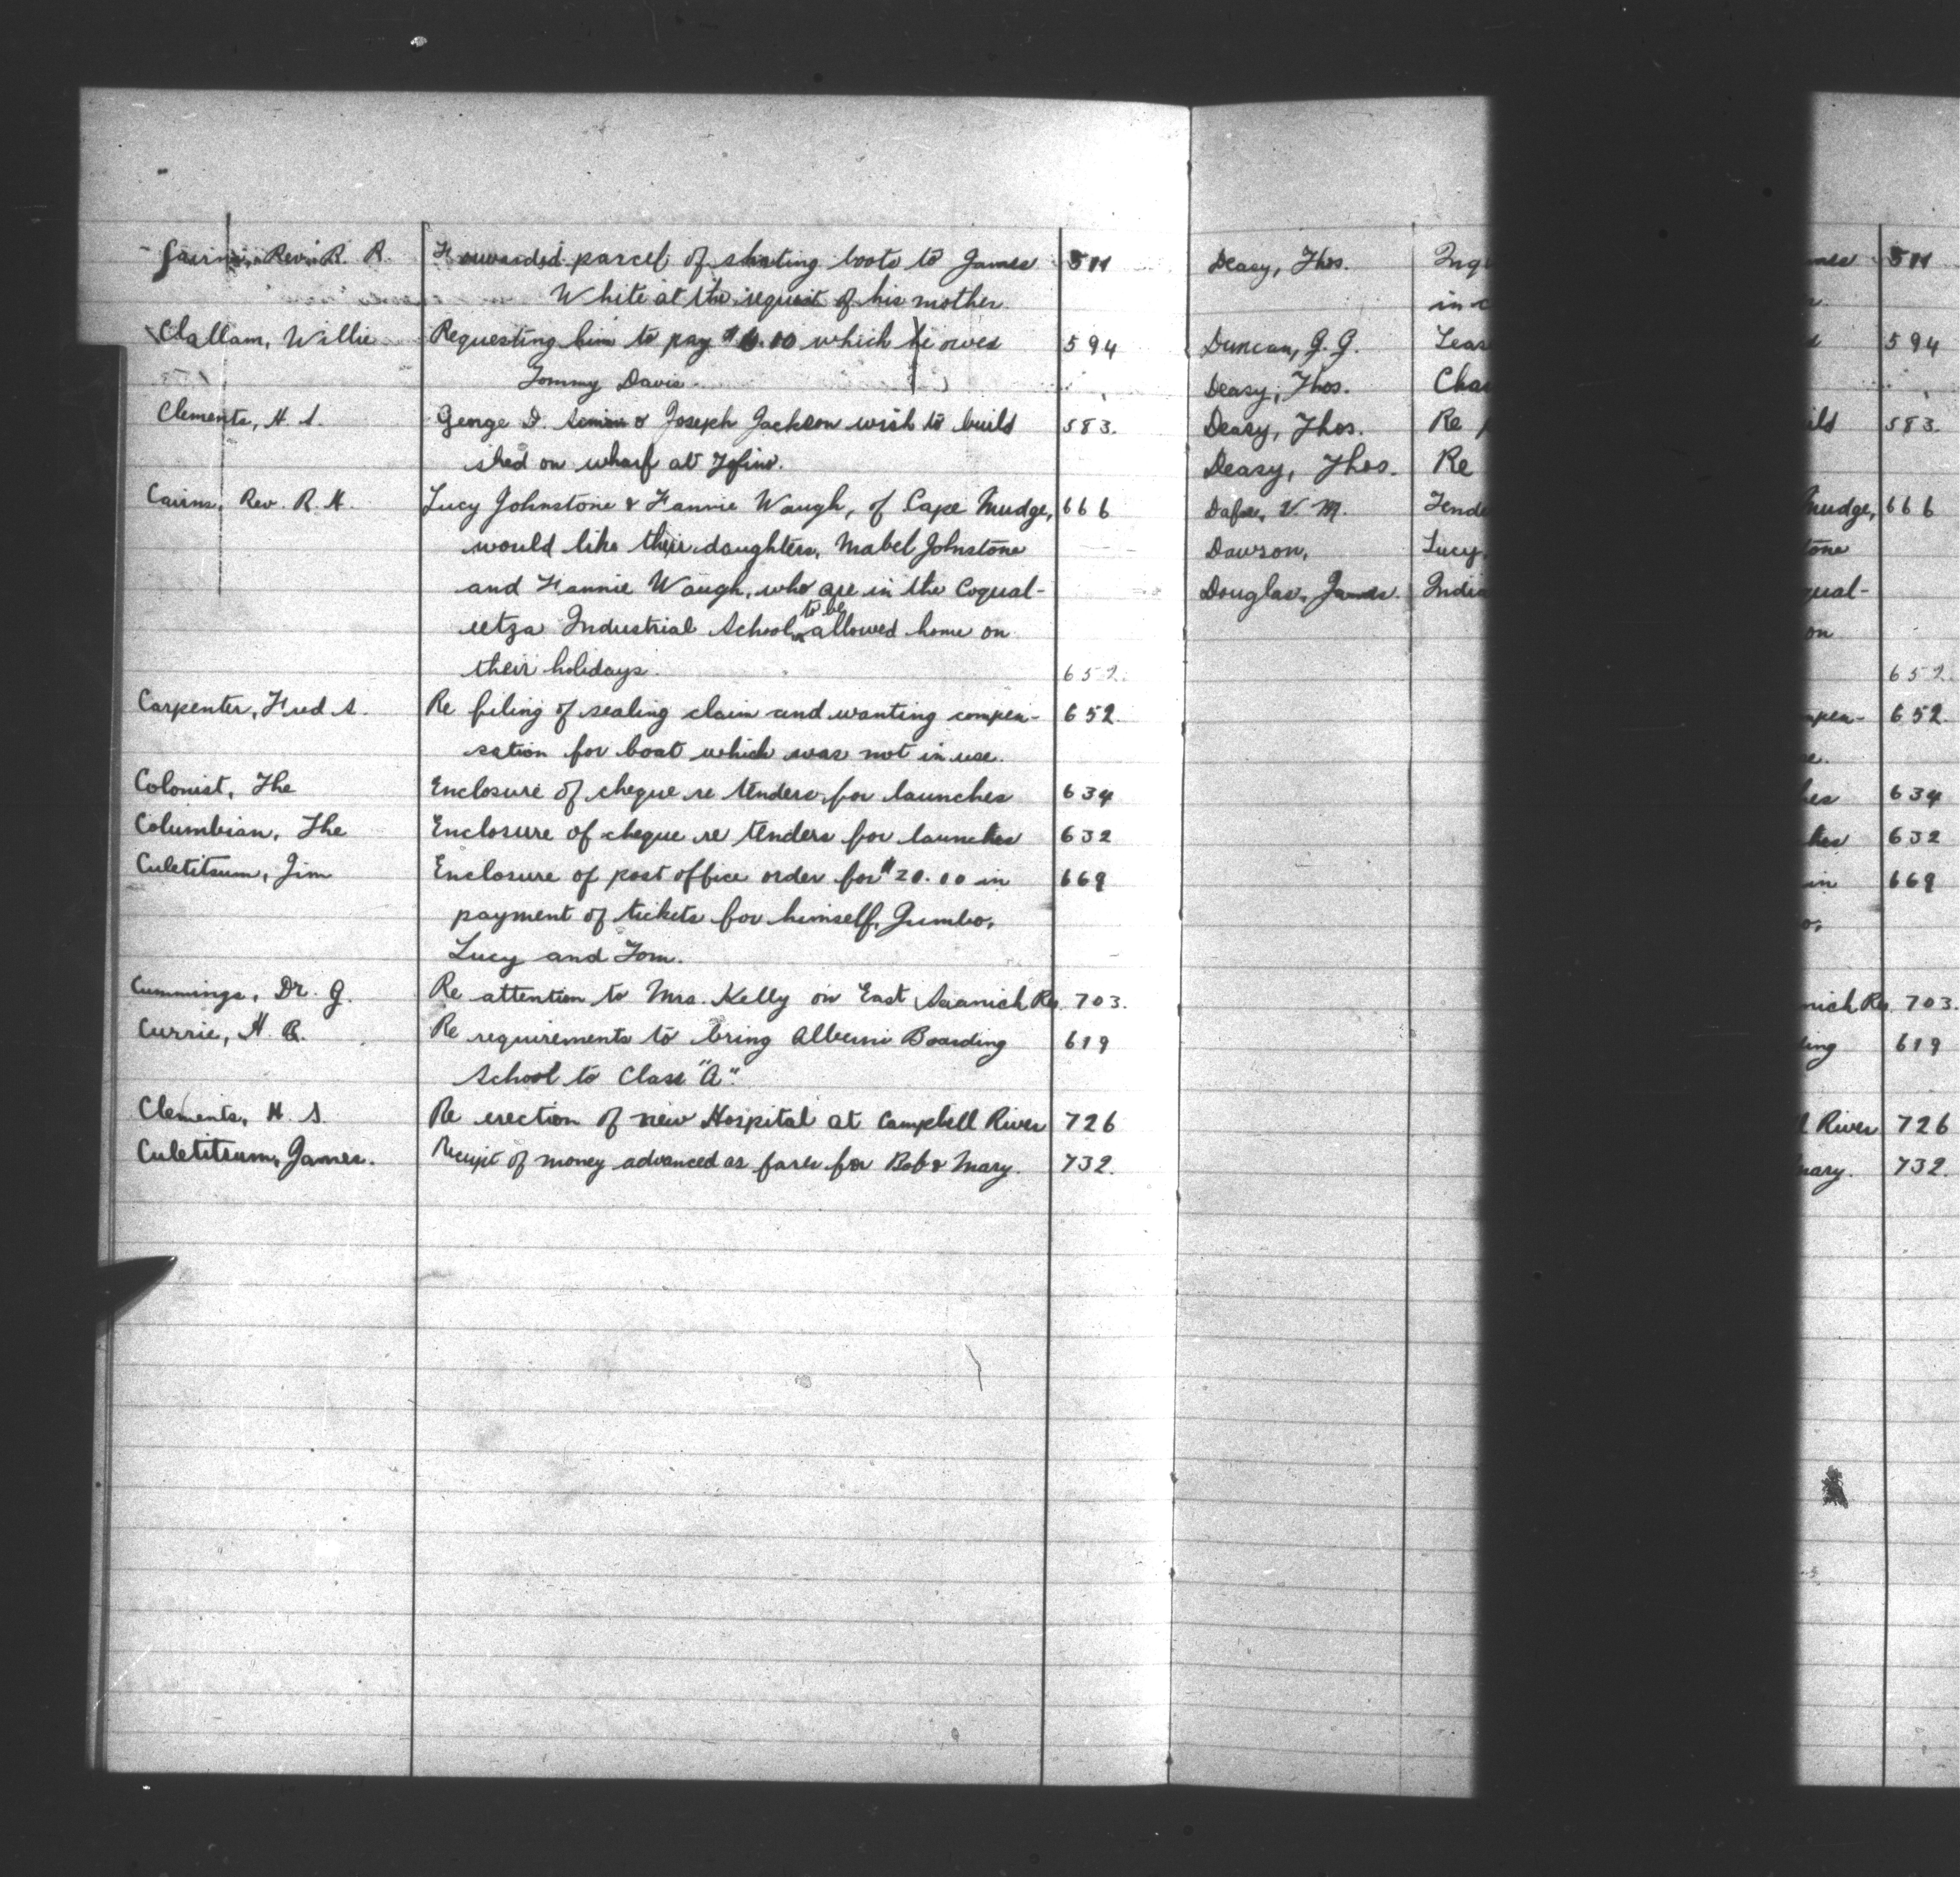 Cairns, Rev. R. A. Forwarded parcel of skating boots to James 511
White at the request of his mother.
Clallam, Willie Requesting him to pay $6.00 which he owes 594
Tommy Davis.
Clements, H. S. George D. & Joseph Jackson wish to build 583.
shed on wharf at Tofino.
Cairns, Rev. R. H. Lucy Johnstone & Fannie Waugh, of Cape Mudge, 666
would like their daughters, Mabel Johnstone
and Fannie Waugh, who are in the Coqual-
eetza Industrial School, to be allowed home on
their holidays. 652.
Carpenter, Fred S. Re filing of sealing claim and wanting compen- 652.
sation for boat which was not in use.
Colonist, The Enclosure of cheque re tenders for launches 634
Columbian, The Enclosure of cheque re tenders for launches 632
Culetitsum, Jim Enclosure of post office order for $20.00 in 669
payment of tickets for himself, Jumbo,
Lucy and Tom.
Cummings, Dr. G. Re attention to Mrs. Kelly on East Saanich Res. 703.
Currie, H. B. Re requirements to bring Alberni Boarding 619
School to Class "A".
Clements, H. S. Re erection of new Hospital at Campbell River 726
Culetitsum, James. Receipt of money advanced as fares for Bob & Mary. 732.
Deasy, Thos.
in
Duncan, G. G. Leas
Deasy, Thos. Cha
Deasy, Thos. Re
Deasy, Thos. Re
V. M. Tende
Dawson, Lucy,
Douglas, James. India
mes 511
594
ild 583.
Mudge, 666
tone
qual-
on
652.
mpen- 652.
se.
hes 634
hes 632
in 669
o,
nich Res. 703.
ding 619
l River 726
Mary. 732.